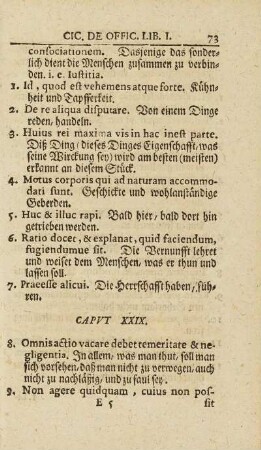 CIC. DE OFFIC. LIB. I. 73
consociationem. Dasjenige das sonder-
lich dient die Menschen zusammen zu verbin-
den. i. e. Iustitia.
1. Id, quod est vehemens atque forte. Kühn-
heit und Tapfferkeit.
2. De re aliqua disputare. Von einem Dinge
reden, handeln.
3. Huius rei maxima vis in hac inest parte.
Diß Ding / dieses Dinges Eigenschafft, was
seine Wirckung sey) wird am besten (meisten)
erkannt an diesem Stück.
4. Motus corporis qui ad naturam accommo-
dati sunt. Geschickte und wohlanständige
Geberden.
5. Huc & illuc rapi. Bald hier / bald dort hin
getrieben werden.
6. Ratio docet, & explanat, quid faciendum,
fugiendumue sit. Die Vernunfft lehret
und weiset dem Menschen, was er thun und
lassen soll.
7. Praeesse alicui. Die Herrschafft haben / füh-
ren.
CAPVT XXIX.
8. Omnis actio vacare debet temeritate & ne-
gligentia. In allem, was man thut, soll man
sich vorsehen, daß man nicht zu verwegen, auch
nicht zu nachläßig, und zu faul sey.
9. Non agere quidquam, cuius non pos-
E 5 sit